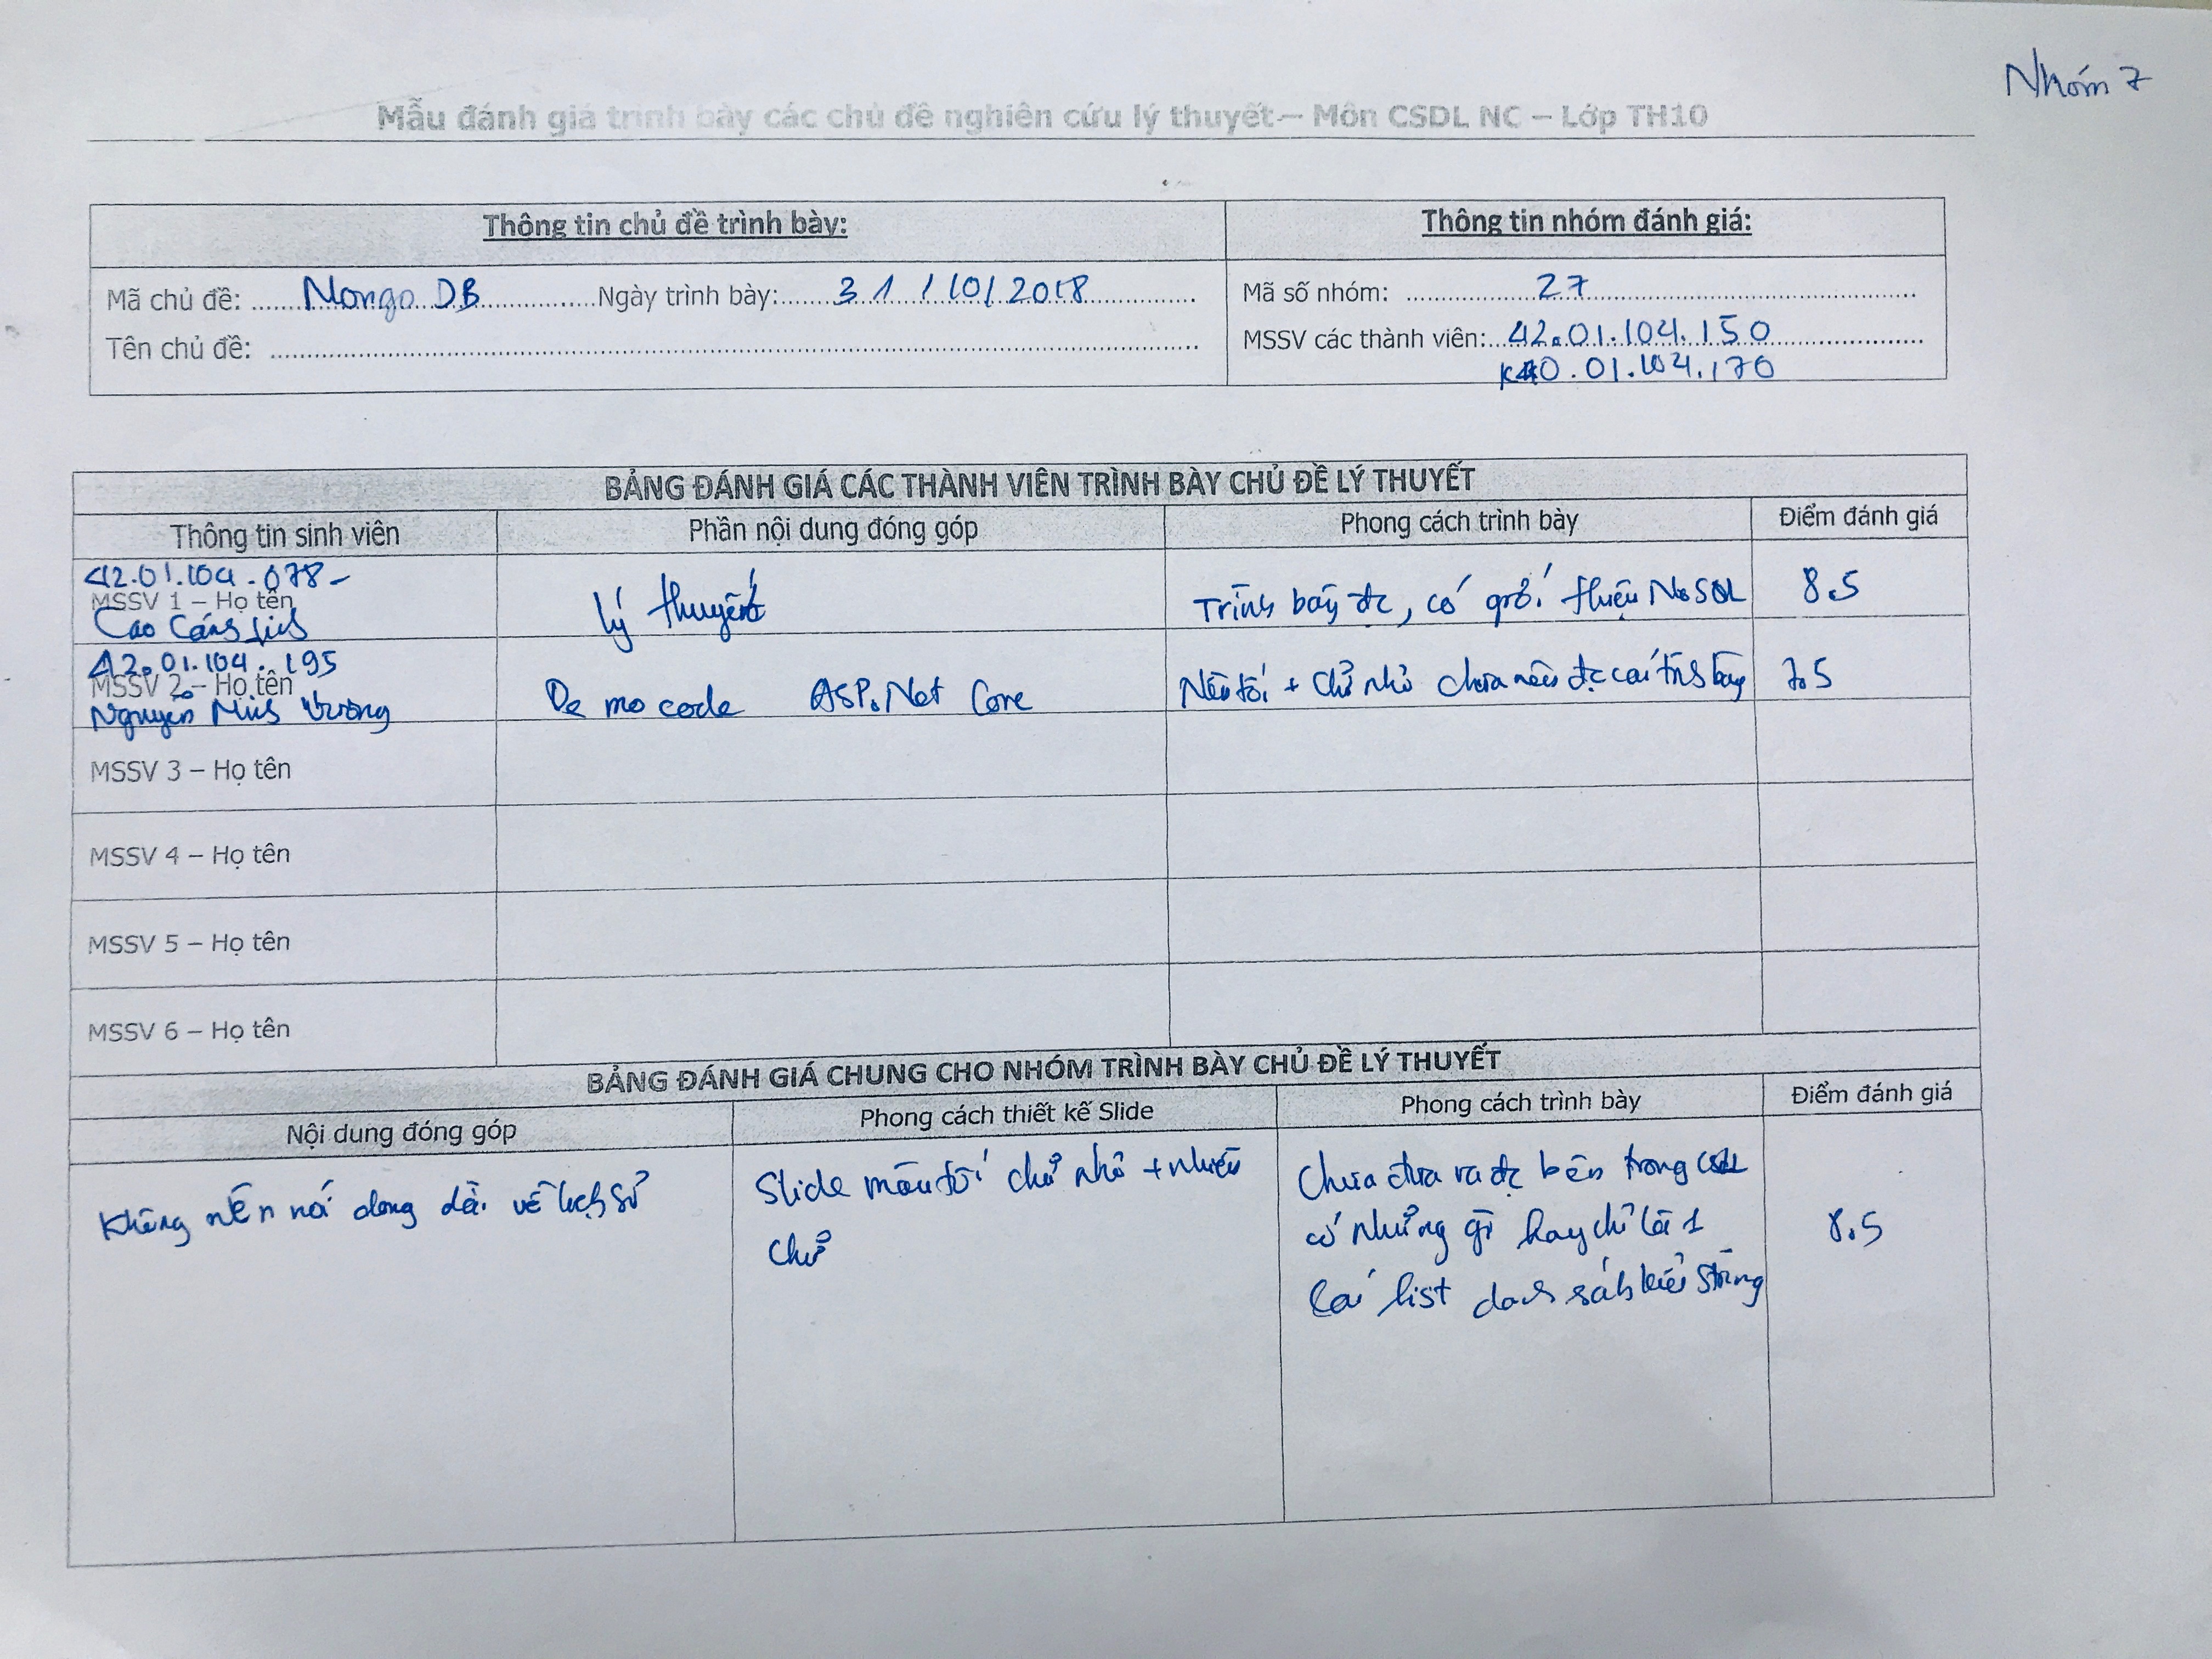 Nhóm 7
Mẫu đánh giá trình bày các chủ đề nghiên cứu lý thuyết – Môn CSDL NC – Lớp TH10
Thông tin chủ đề trình bày:
Thông tin nhóm đánh giá:
Mã chủ đề: Mongo DB Ngày trình bày: 31/10/2018
Mã số nhóm: 27
Tên chủ đề:
MSSV các thành viên: 42.01.104.150
40.01.104.170
BẢNG ĐÁNH GIÁ CÁC THÀNH VIÊN TRÌNH BÀY CHỦ ĐỀ LÝ THUYẾT
Thông tin sinh viên Phần nội dung đóng góp Phong cách trình bày Điểm đánh giá
42.01.104.078-
MSSV 1 – Họ tên
Cao Công
lý thuyết
Trình bày đc, có giới thiệu NoSQL
8.5
42.01.104.195
MSSV 2 – Họ tên
Nguyễn Minh Vương
De mo code ASP.Net Core
Nền tối + chữ nhỏ chưa nêu đc cái trình bày
7.5
MSSV 3 – Họ tên
MSSV 4 – Họ tên
MSSV 5 – Họ tên
MSSV 6 – Họ tên
BẢNG ĐÁNH GIÁ CHUNG CHO NHÓM TRÌNH BÀY CHỦ ĐỀ LÝ THUYẾT
Nội dung đóng góp Phong cách thiết kế Slide Phong cách trình bày Điểm đánh giá
Không nên nói dong dài về lịch sử
Slide màu tối chữ nhỏ + nhiều
chữ
Chưa đưa ra đc bên trong CSDL
có những gì hay chỉ là 1
cái list danh sách kiểu string
8.5